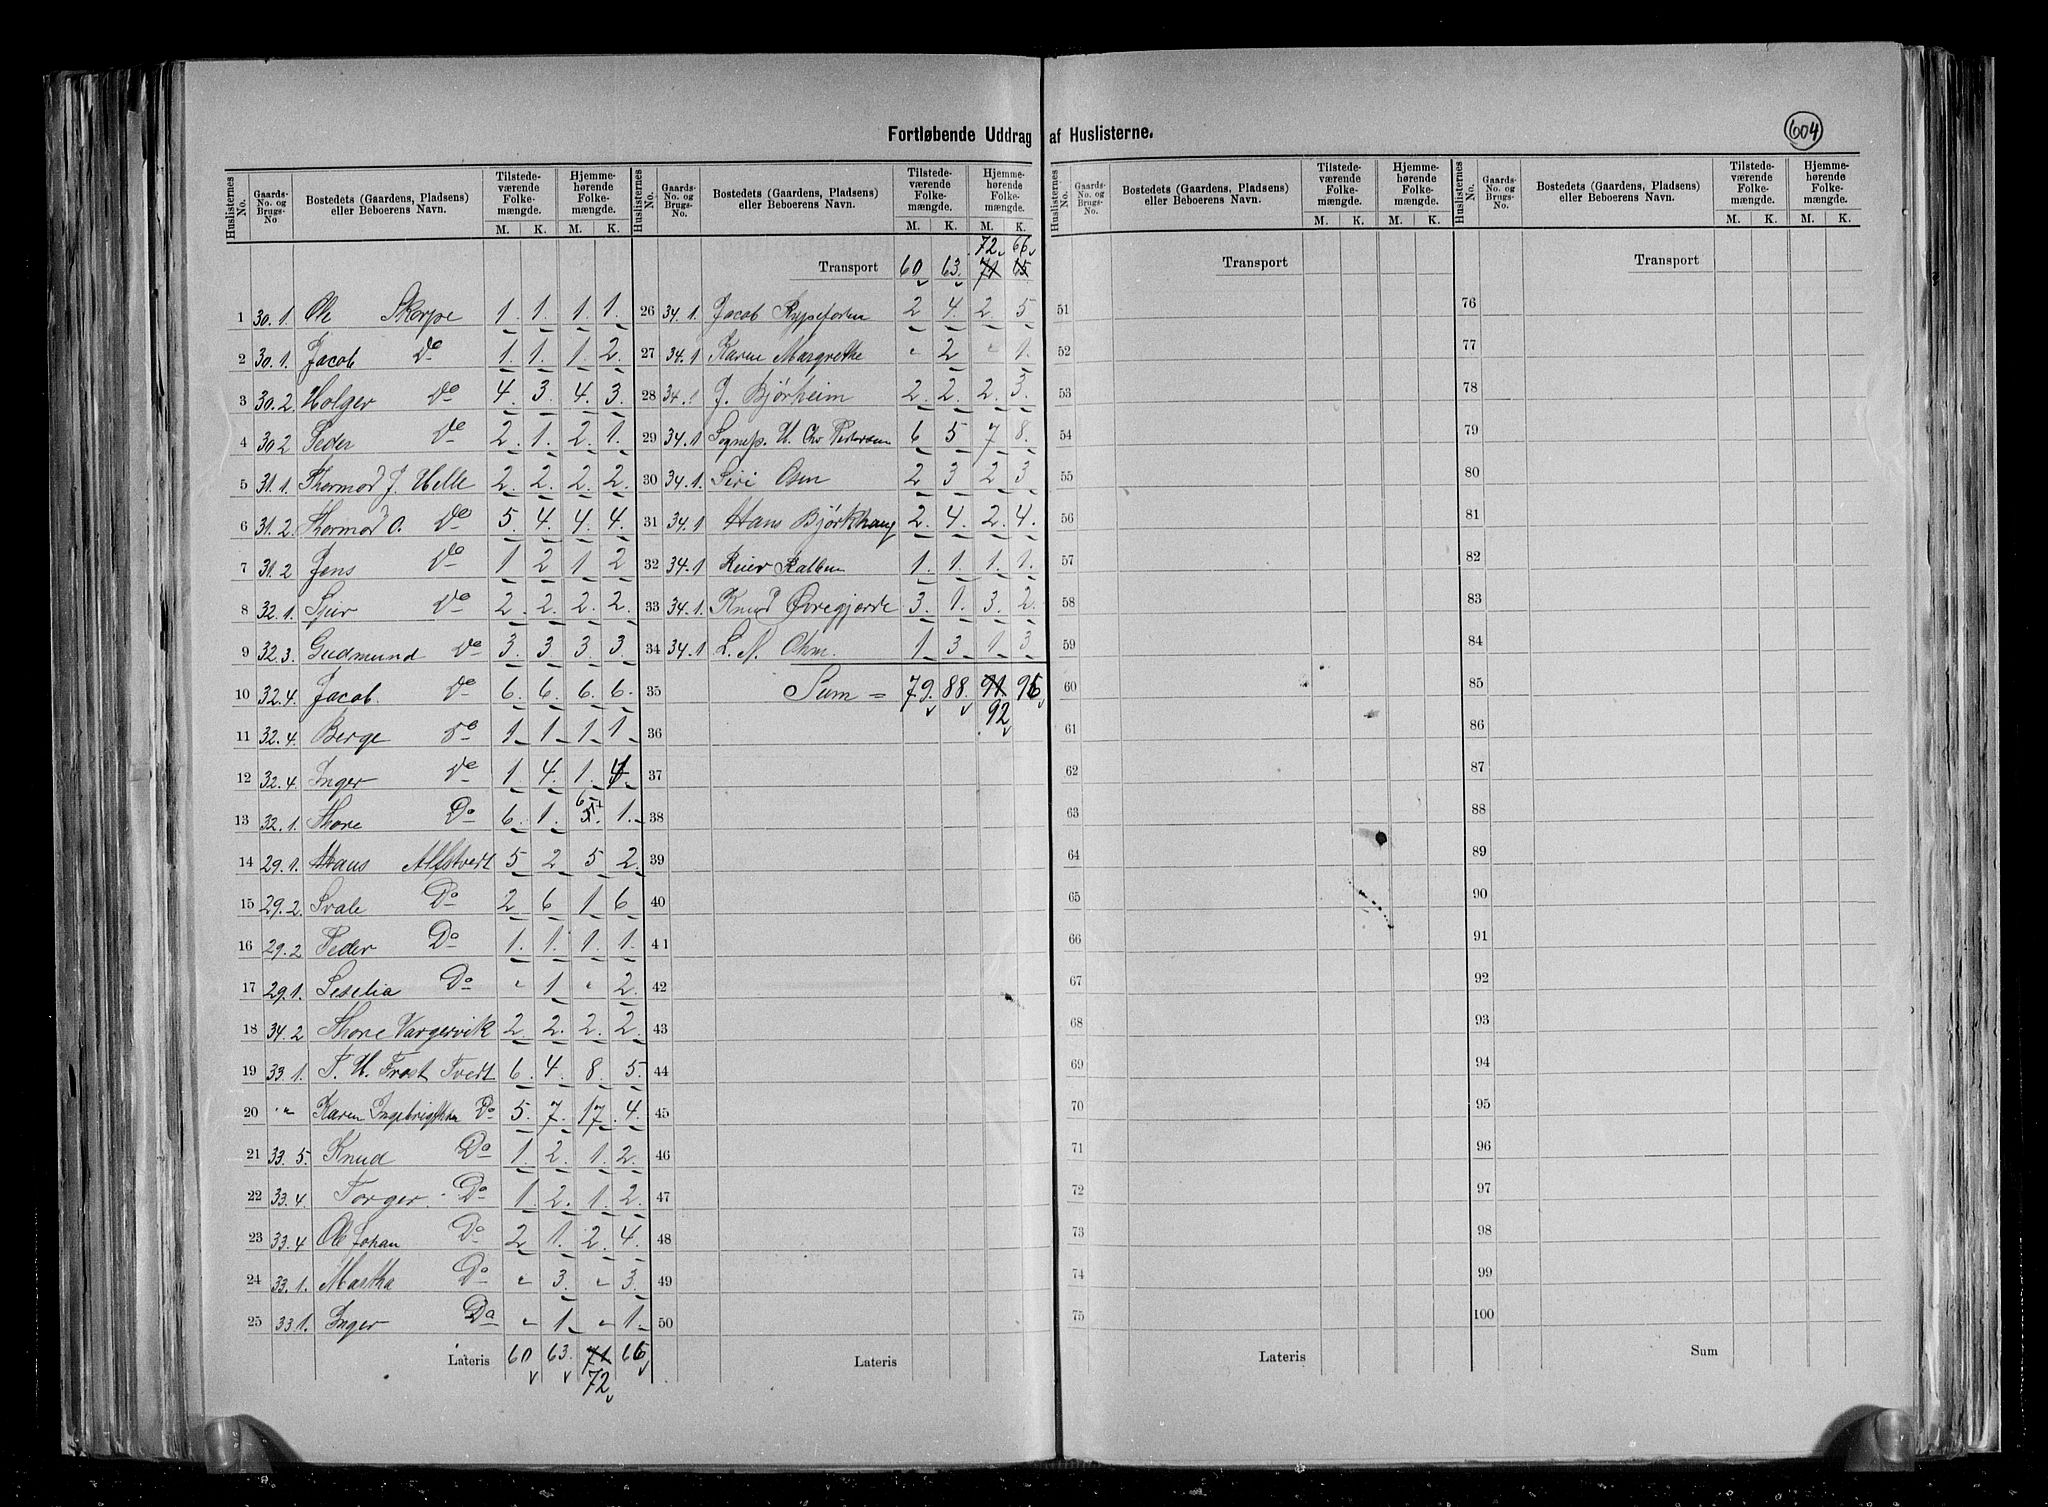 Fortløbende Uddrag af Huslisterne.
604
Huslisternes No. Gaards-No. og Brugs-No Bostedets (Gaardens, Pladsens) eller Beboerens Navn. Tilstedeværende Folkemængde. M. K. Hjemmehørende Folkemængde. M. K.
1 30.1. Ole Skorpe 1. 1. 1. 1.
2 30.1. Jacob Do 1. 1. 1. 2.
3 30.2. Holger Do 4. 3. 4. 3.
4 30.2 Peder Do 2. 1. 2. 1.
5 31.1. Thormod J. Helle 2. 2. 2. 2.
6 31.2. Thormod O. Do 5. 4. 4. 4.
7 31.2 Jens Do 1 2 1 2
8 32.1. Sjur Do 2. 2. 2. 2.
9 32.3. Gudmund Do 3. 3. 3. 3.
10 32.4. Jacob. Do 6. 6. 6. 6.
11 32.4. Berge Do 1 1 1 1
12 32.4. Inger Do 1. 4. 1. 4
13 32.1. Thore Do 6. 1. 5. 6 1.
14 29.1. Hans Alfstvedt 5 2 5 2.
15 29.2. Svale Do 2 6 1 6
16 29.2 Peder Do 1. 1. 1. 1.
17 29.1. Do " 1 " 2.
18 34.2 Thore Vargervik 2. 2. 2. 2.
19 33.1. T. H. Frost Tvedt 6. 4. 8. 5.
20 " " Karen Do 5. 7. 17. 4.
21 33.5. Knud Do 1. 2. 1. 2.
22 33.4. Torger. Do 1. 2. 1. 2.
23 33.4 Ole Johan Do 2 1. 2. 4.
24 33.1. Martha Do " 3. " 3.
25 33 1. Inger Do " 1 " 1.
Lateris 60 63. 71 66
72
Huslisternes No. Gaards-No. og Brugs-No. Bostedets (Gaardens, Pladsens) eller Beboerens Navn. Tilstedeværende Folkemængde. M. K. Hjemmehørende Folkemængde. M. K.
72. 66
Transport 60 63. 71 65
26 34.1. Jacob 2 4. 2. 5
27 34.1 Karen Margrethe " 2 " 1.
28 34.1 J. Bjørheim 2. 2. 2. 3.
29 34.1 Sognep. H. Chr Petersen 6 5 7 8.
30 34.1. Siri Osen 2 3 2 3
31 34.1 Hans Bjørkhaug 2. 4. 2. 4.
32 34.1 1. 1. 1. 1.
33 34.1. Knud Øvregjerde 3. 1. 3. 2.
34 34.1 L. N. 1 3 1 3
35 Sum = 79. 88. 91 96
92
36
37
38
39
40
41
42
43
44
45
46
47
48
49
50
Lateris
Huslisternes No. Gaards-No. og Brugs-No. Bostedets (Gaardens, Pladsens) eller Beboerens Navn. Tilstedeværende Folkemængde. M. K. Hjemmehørende Folkemængde. M. K.
Transport
51
52
53
54
55
56
57
58
59
60
61
62
63
64
65
66
67
68
69
70
71
72
73
74
75
Lateris
Huslisternes No. Gaards-No. og Brugs-No. Bostedets (Gaardens, Pladsens) eller Beboerens Navn. Tilstedeværende Folkemængde. M. K. Hjemmehørende Folkemængde. M. K.
Transport
76
77
78
79
80
81
82
83
84
85
86
87
88
89
90
91
92
93
94
95
96
97
98
99
100
Sum